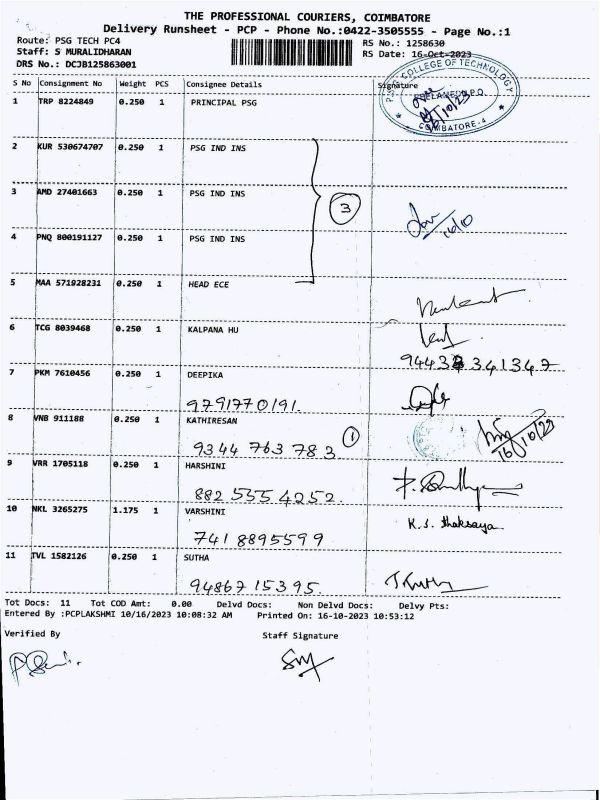 THE PROFESSIONAL COURIERS, COIMBATORE
Delivery Runsheet - PCP - Phone No.:0422-3505555 - Page No.:1
Route: PSG TECH PC4
RS No.: 1258630
Staff: S MURALIDHARAN
RS Date: 16-Oct-2023
DRS No.: DCJB125863001
S No Consignment No Weight PCS Consignee Details Signature
PSG COLLEGE OF TECHNOLOGY
PEELAMEDU P.O.
16/10/23
COIMBATORE-4
1 TRP 8224849 0.250 1 PRINCIPAL PSG
2 KUR 530674707 0.250 1 PSG IND INS
3 AMD 27401663 0.250 1 PSG IND INS
3
16/10
4 PNQ 800191127 0.250 1 PSG IND INS
5 MAA 571928231 0.250 1 HEAD ECE
6 TCG 8039468 0.250 1 KALPANA HU
94438 341347
7 PKM 7610456 0.250 1 DEEPIKA
9791770191.
8 VNB 911188 0.250 1 KATHIRESAN
9344 763 783 1
16/10/23
9 VRR 1705118 0.250 1 HARSHINI
882 555 4252.
10 NKL 3265275 1.175 1 VARSHINI
K.S. Thaksaya
7418895599
11 TVL 1582126 0.250 1 SUTHA
94867 15395.
Tot Docs: 11 Tot COD Amt: 0.00 Delvd Docs: Non Delvd Docs: Delvy Pts:
Entered By :PCPLAKSHMI 10/16/2023 10:08:32 AM Printed On: 16-10-2023 10:53:12
Verified By Staff Signature